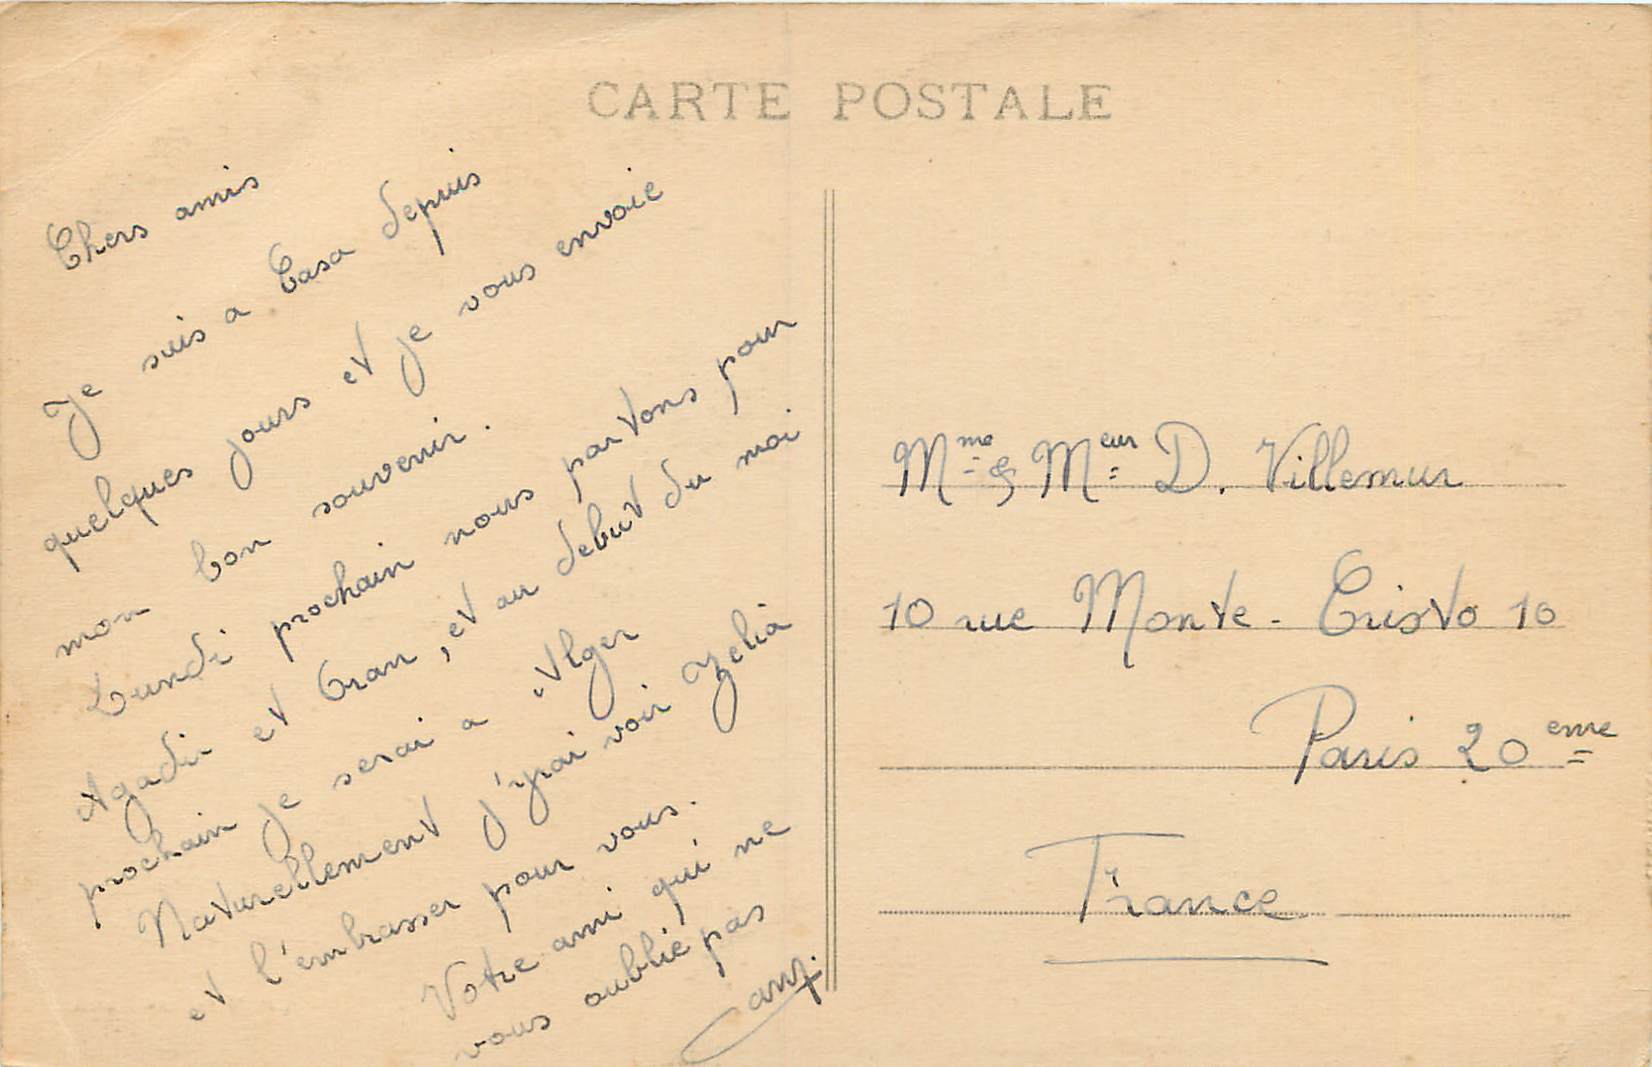 CARTE POSTALE
Chers amis
Je suis a Casa depuis
quelques jours et je vous envoie
mon bon souvenir.
Lundi prochain nous partons pour
Agadir et Oran, et au debut du moi
prochain je serai a Alger
Naturellement j'irai voir Zelia
et l'embrasser pour vous.
Votre ami qui ne
vous oublie pas
Mme & Meur D. Villemur
10 rue Monte-Cristo 10
Paris 20eme
France